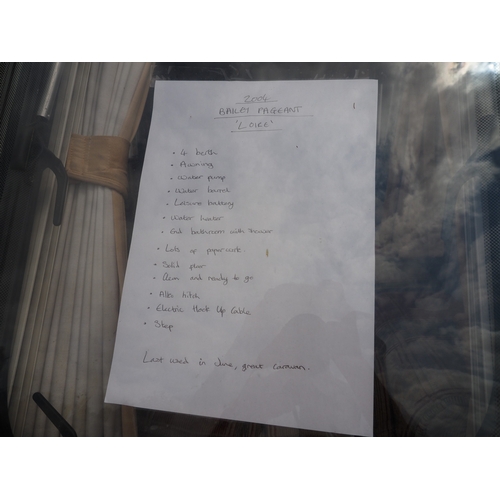 2004
BAILEY PAGEANT
'LOIRE'
• 4 berth
• Awning
• Water pump
• Water barrel
• Leisure battery
• Water heater
• End bathroom with shower
• Lots of paperwork.
• Solid floor
• Clean and ready to go
• Alko hitch
• Electric Hook Up Cable
• Step
Last used in June, great caravan.